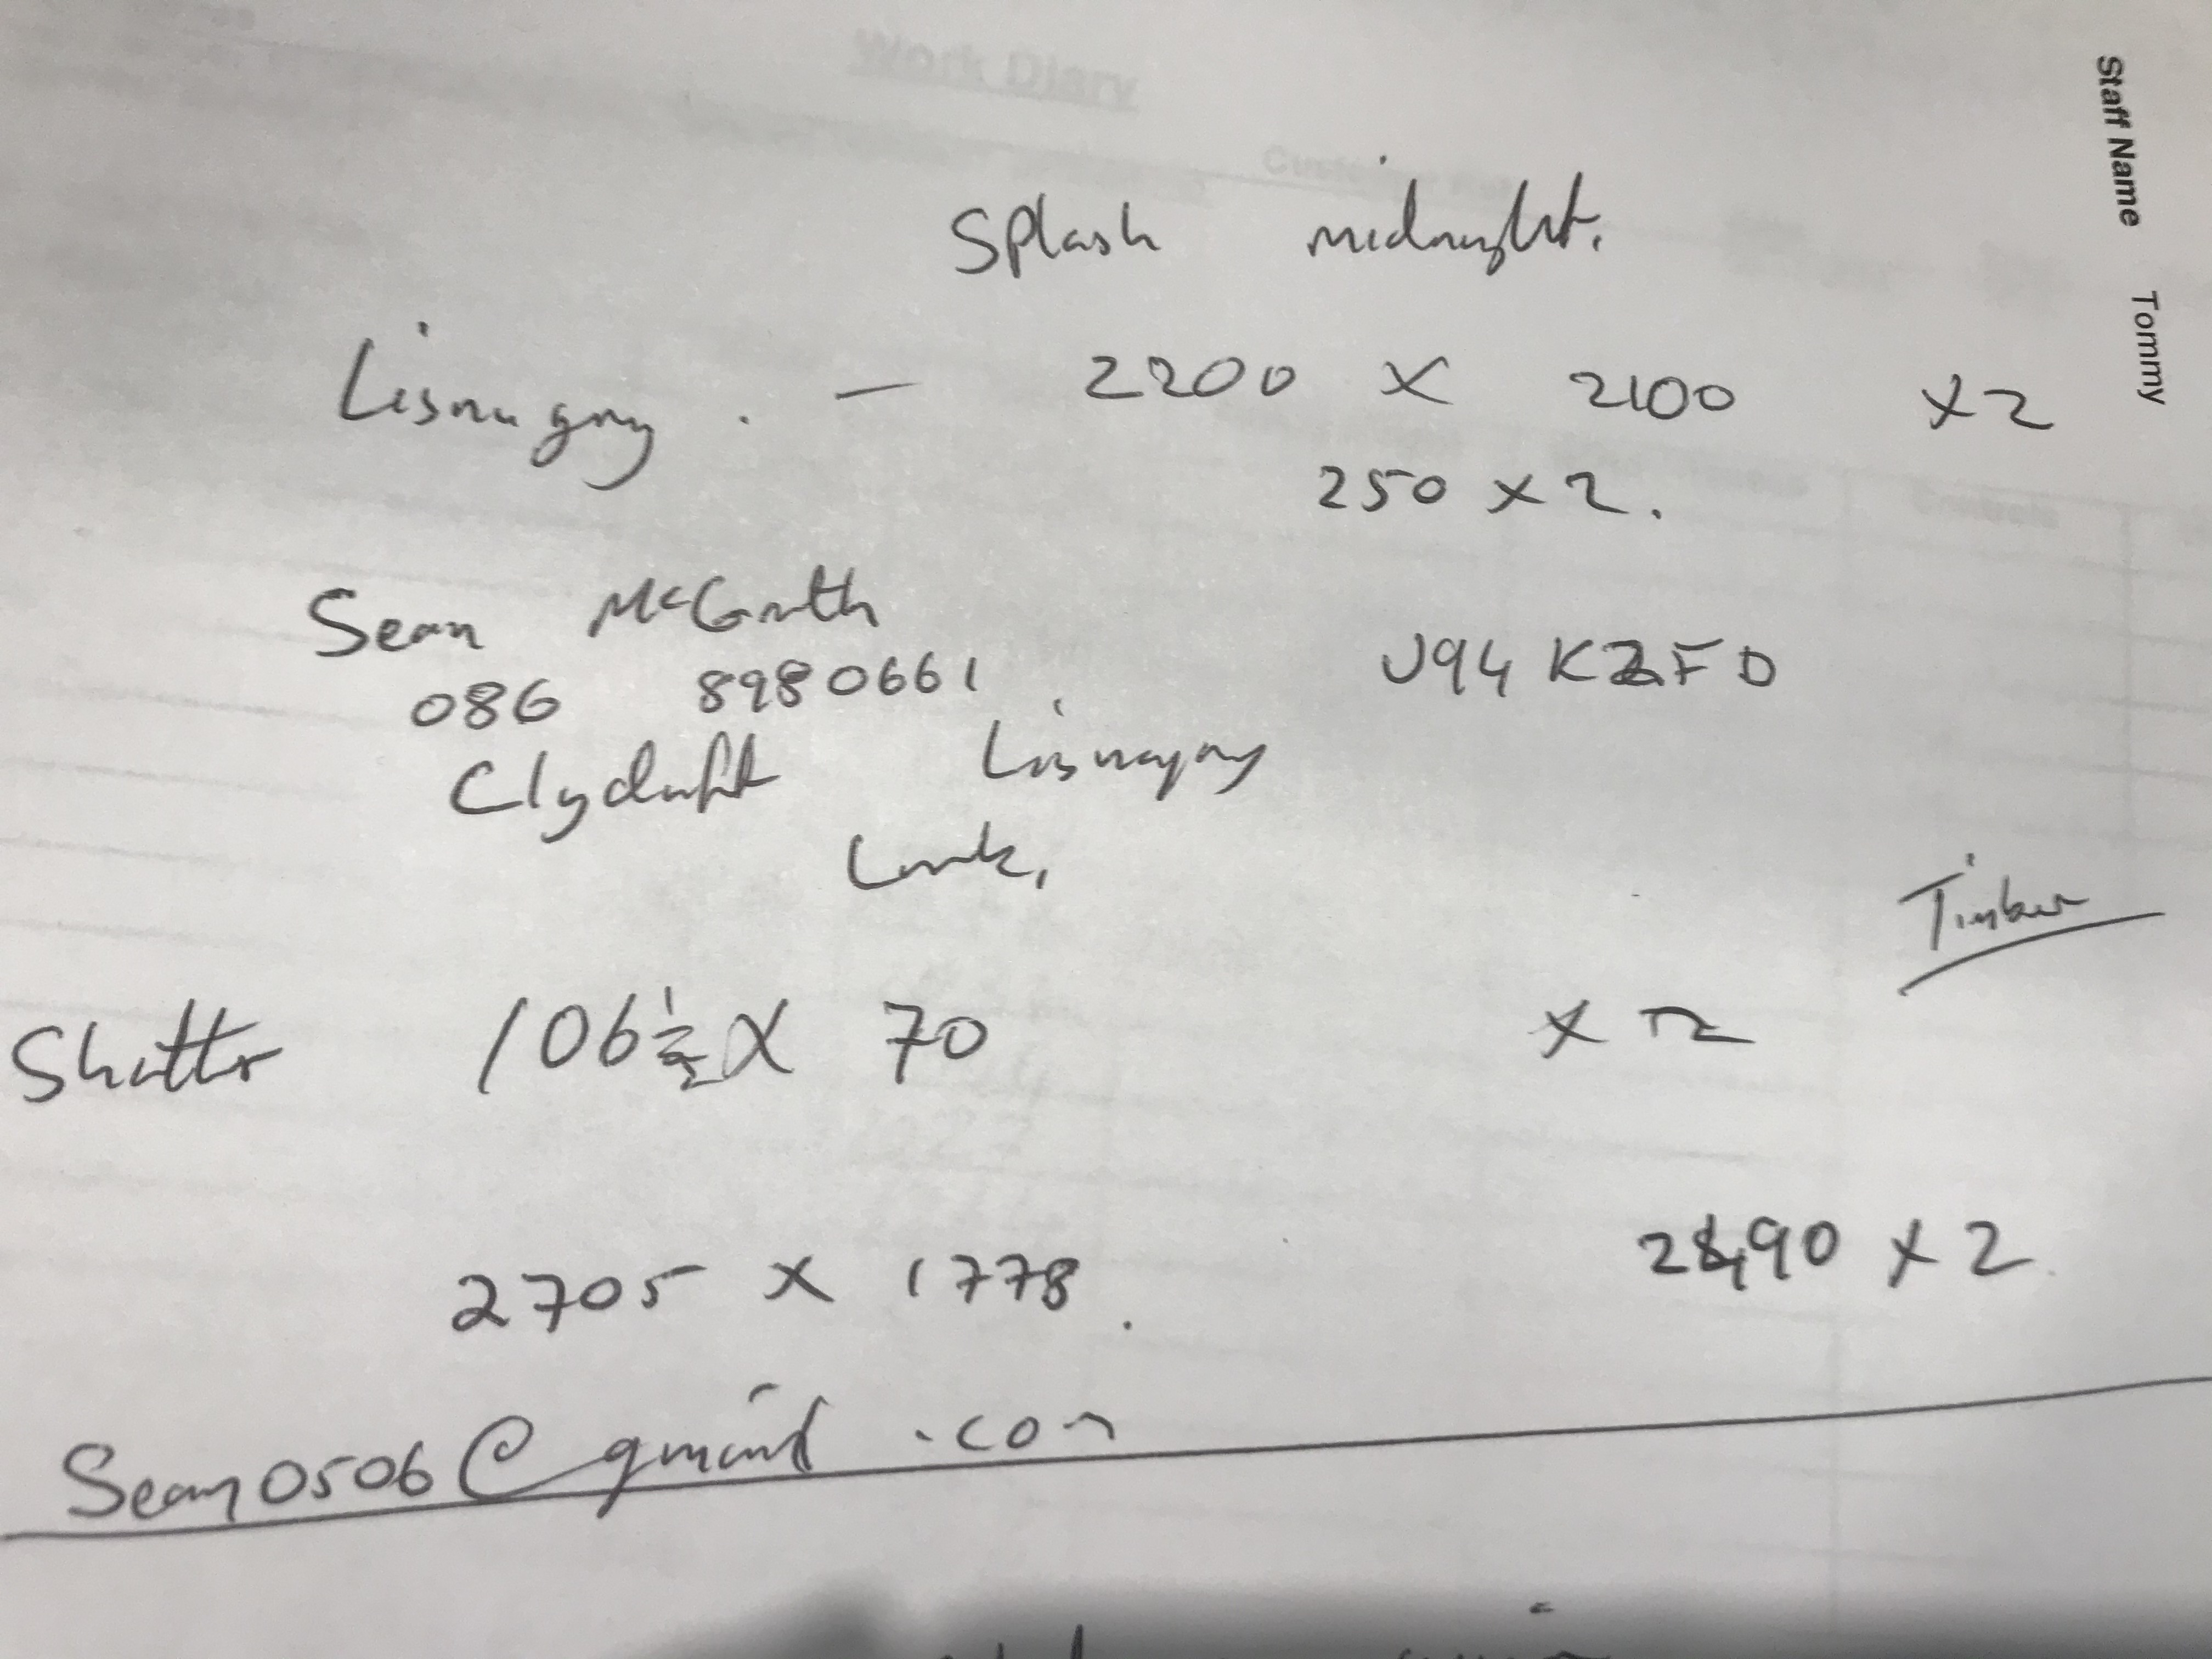 Work Diary
Staff Name Tommy
Splash midnight.
Lisnagry. — 2200 x 2100 x2
250 x 2.
Sean McGrath
086 8980661
V94 KZFD
Lisnagry
Timber
Shutter 106½ X 70 x 2
2705 x 1778.
2490 x 2
Sean0506@gmail.com